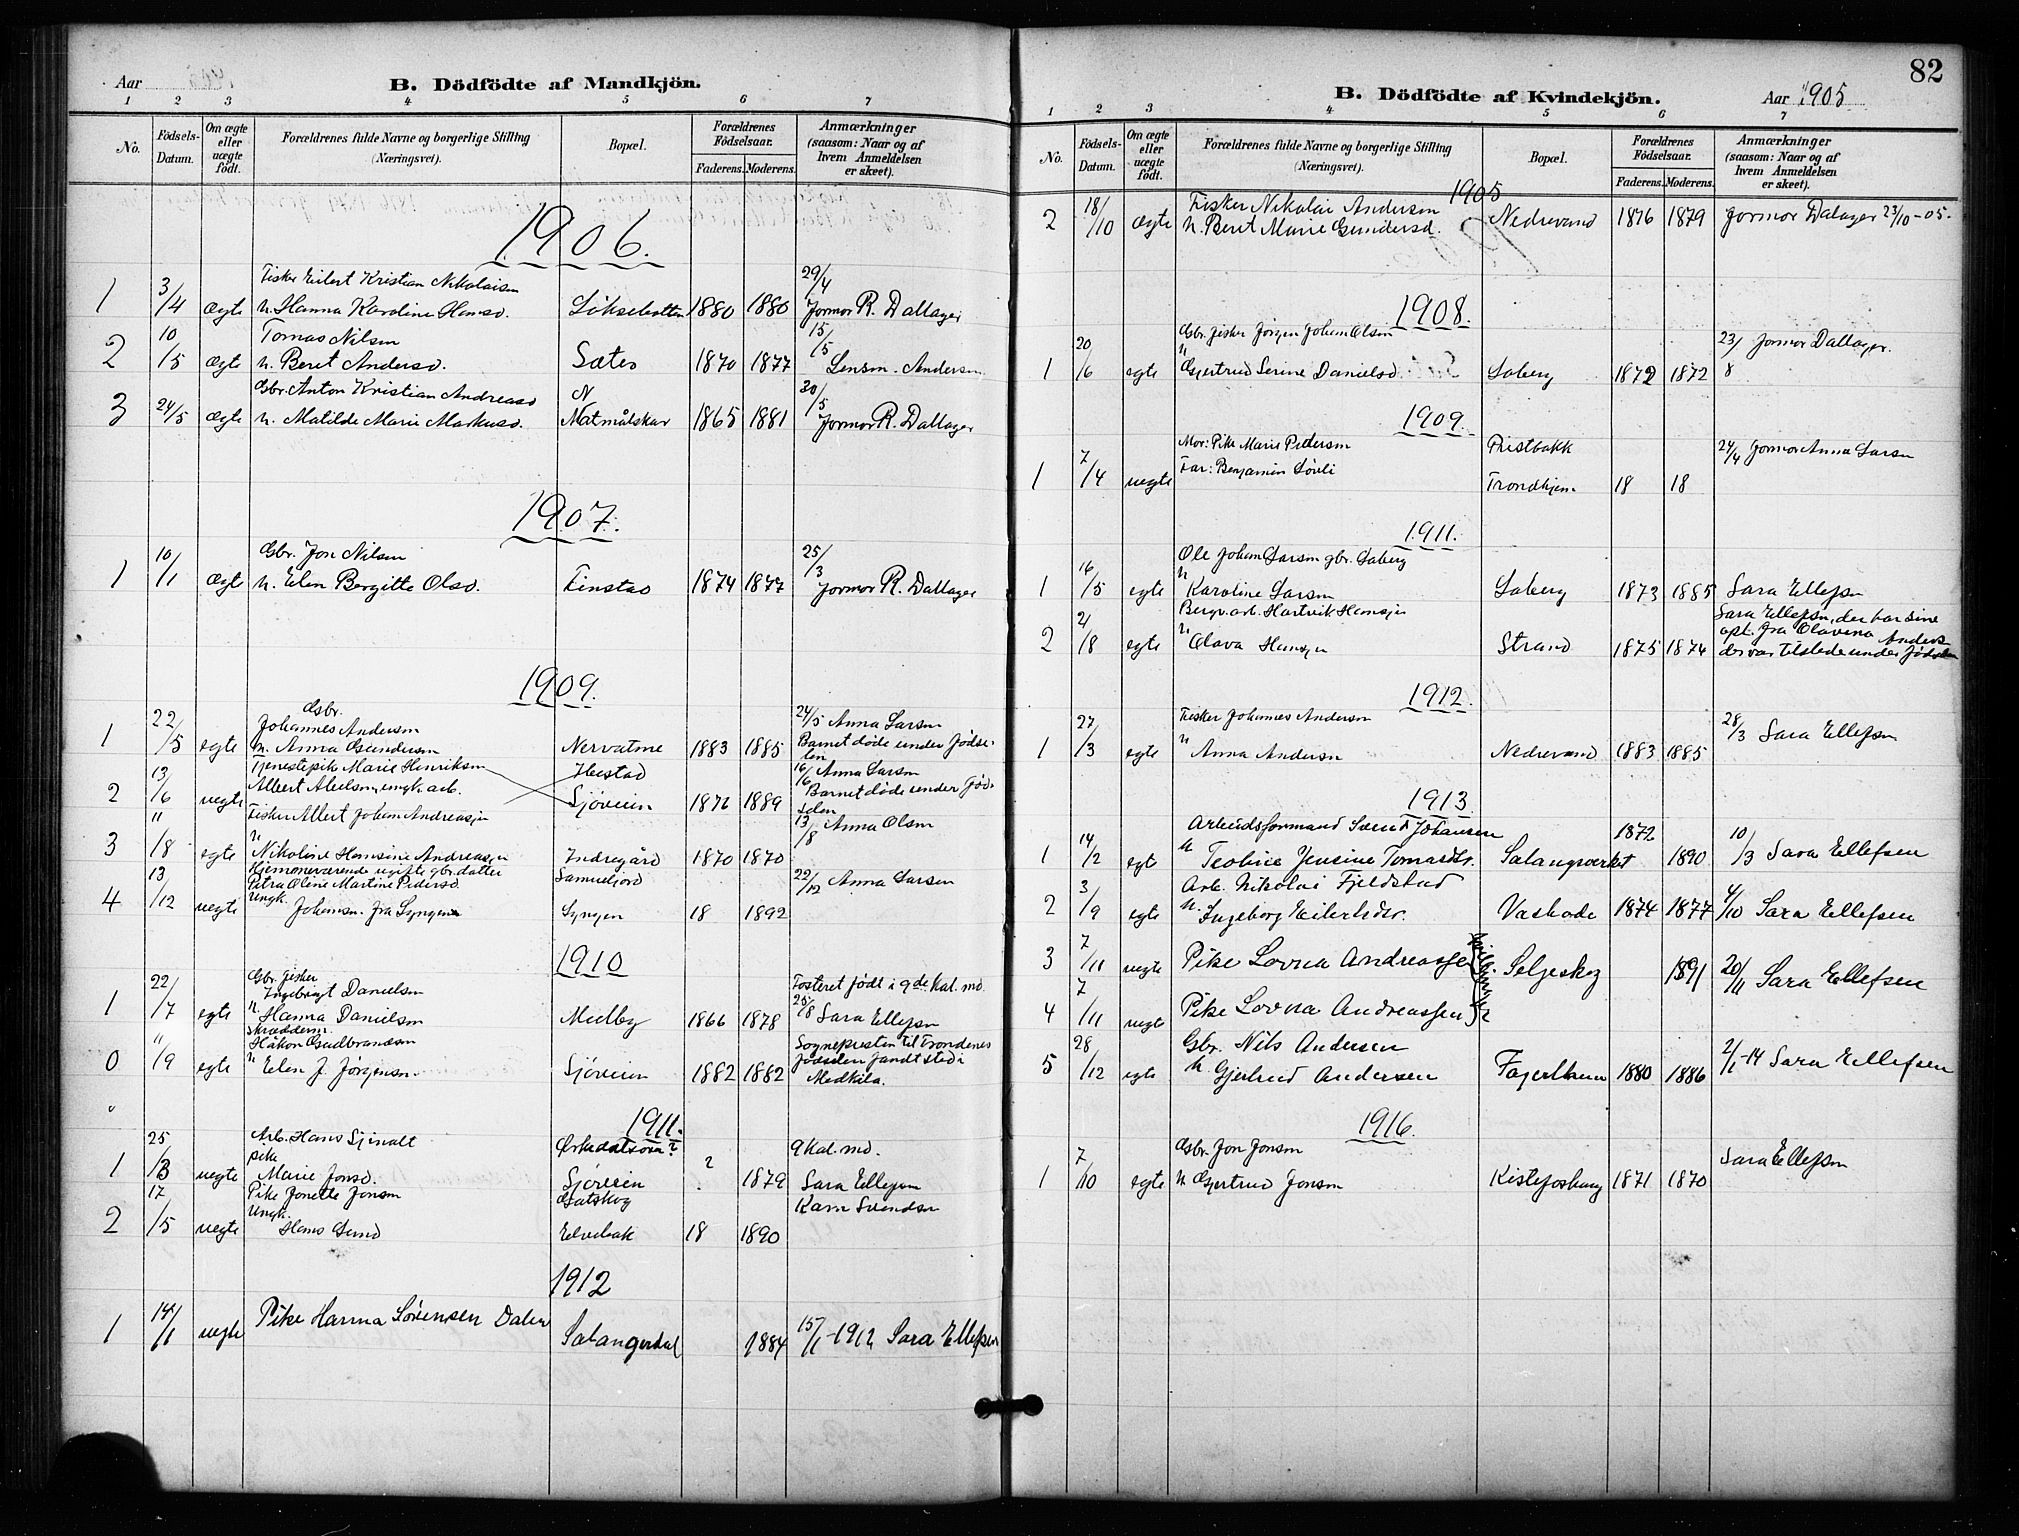 Aar
B. Dödfödte af Mandkjön.
1 2 3 4 5 6 7
No.
Födsels-Datum.
Om ægte eller uægte födt.
Forældrenes fulde Navne og borgerlige Stilling
(Næringsvei).
Bopæl.
Forældrenes Födselsaar.
Faderens. Moderens.
Anmærkninger
(saasom: Naar og af
hvem Anmeldelsen
er skeet).
1906.
Fisker Eilert Kristian Nikolaisen 29/4
1 3/4 ægte h. Hanna Karoline Hansd. Löksebotten 1880 1880 Jormor R. Dallager
Tomas Nilsen 15/5
2 10/5 ægte h. Beret Andersd. Sætes 1870 1877 Lensm. Andersen
Gbr. Anton Kristian Andreasd N 30/5
3 24/5 ægte h. Matilde Marie Markusd. Matmålskar 1865 1881 Jormor R. Dallager
1907.
Gbr. Jon Nilsen 25/3
1 10/1 ægte h. Elen Bergitte Olsd. Tinstad 1874 1877 Jormor R. Dallager
1909.
Gbr.
Johannes Andersen 24/5 Anna Larsen
1 22/5 egte h. Anna Gundersen Nervatne 1883 1885 Barnet døde under fødselen
Tjenestepike Marie Henriksen Ibestad 16/6 Anna Larsen
2 13/6 uegte Albert Abelsen, ungk. arb. Sjøveien 1872 1889 Barnet døde under fødselen
Fisker Albert Johan Andreasjen 13/8 Anna Olsen
3 11/8 egte h Nikoline Hansine Andreasjen Indregård 1870 1870
Hjemmeværende ugifte gbr. datter
Petra Oline Martine Pedersd. Samueljord 22/12 Anna Larsen
4 13/12 uegte Ungk. Johansen fra Lyngen Lyngen 18 1892
1910
Gbr. fisker
Ingebrigt Danielsen Fosteret født i 9de kal. md.
1 22/7 egte h Hanna Danielsen Midtby 1866 1878 25/8 Sara Ellefsen
Skrædderm.
Håkon Gudbrandsen Sognepresten til Trondenes
0 11/9 egte h Elen J. Jørgensen. Sjøveien 1882 1882 fødselen fandt sted i Medkila.
1911.
Arb. Hans 9 kal. md.
1 25/3 uegte pike Marie Jonsd. Sjøveien ? 1879 Sara Ellefsen
Pike Jonette Jonsen Gatskog Karn Svendsen
2 17/5 uegte Ungk. Hans Lund Elvebak 18 1890
1912
1 14/1 uegte Pike Hanna Sörensen Dalen Salangsdal 1884 15/1-1912 Sara Ellefsen
82
B. Dödfödte af Kvindekjön.
Aar 1905
1 2 3 4 5 6 7
No.
Födsels-Datum.
Om ægte eller uægte födt.
Forældrenes fulde Navne og borgerlige Stilling
(Næringsvei).
Bopæl.
Forældrenes Födselsaar.
Faderens. Moderens.
Anmærkninger
(saasom: Naar og af
hvem Anmeldelsen
er skeet).
1905
Fisker Nikolai Andersen
2 18/10 ægte h. Beret Marie Gundersd. Nedrevand 1876 1879 Jormor Dalager 23/10-05.
1908.
Gbr. fisker Jørgen Johan Olsen 23/8 Jormor Dallager.
1 20/6 egte h Gjertrud Serine Danielsd Laberg 1872 1872
1909.
Mor: Pike Marie Pedersen Prestbakk 24/4 Jormor Anna Larsen
1 7/4 uegte Far: Benjamin Løvli Trondhjem. 18 18
1911.
Ole Johan Larsen gbr. Laberg
1 16/5 egte h Karoline Larsen Laberg 1873 1885 Sara Ellefsen
Bergv. arb. Hartvik Hansjen Sara Ellefsen, der har sine
2 2/8 egte h Olava Hansjen Strand 1875 1874 opl. fra Olavena Anders. der var tilstede under fødselen
1912.
Fisker Johannes Andersen
1 27/3 egte h Anna Andersen Nedrevand 1883 1885 28/3 Sara Ellefsen
1913
Arbeidsformand Svend Johansen 1872
1 14/2 egt h Teoline Jensine Tomasdtr. Salangsverket 1890 10/3 Sara Ellefsen
Arb. Nikolai Fjeldstad
2 3/9 egte h. Ingeborg Eilertsdtr. Vashode 1874 1877 4/10 Sara Ellefsen
3 7/11 uegte Pike Lovna Andreassen Seljeskog 1891 20/11 Sara Ellefsen
4 7/11 uegte Pike Lovna Andreassen
Gbr. Nils Andersen
5 28/12 egte h. Gjertrud Andersen Fagerthun 1880 1886 2/1-14 Sara Ellefsen
1916.
Gbr. Jon Jonsen Sara Ellefsen
1 7/10 egte h Gjertrud Jonsen Kistefoshaug 1871 1870